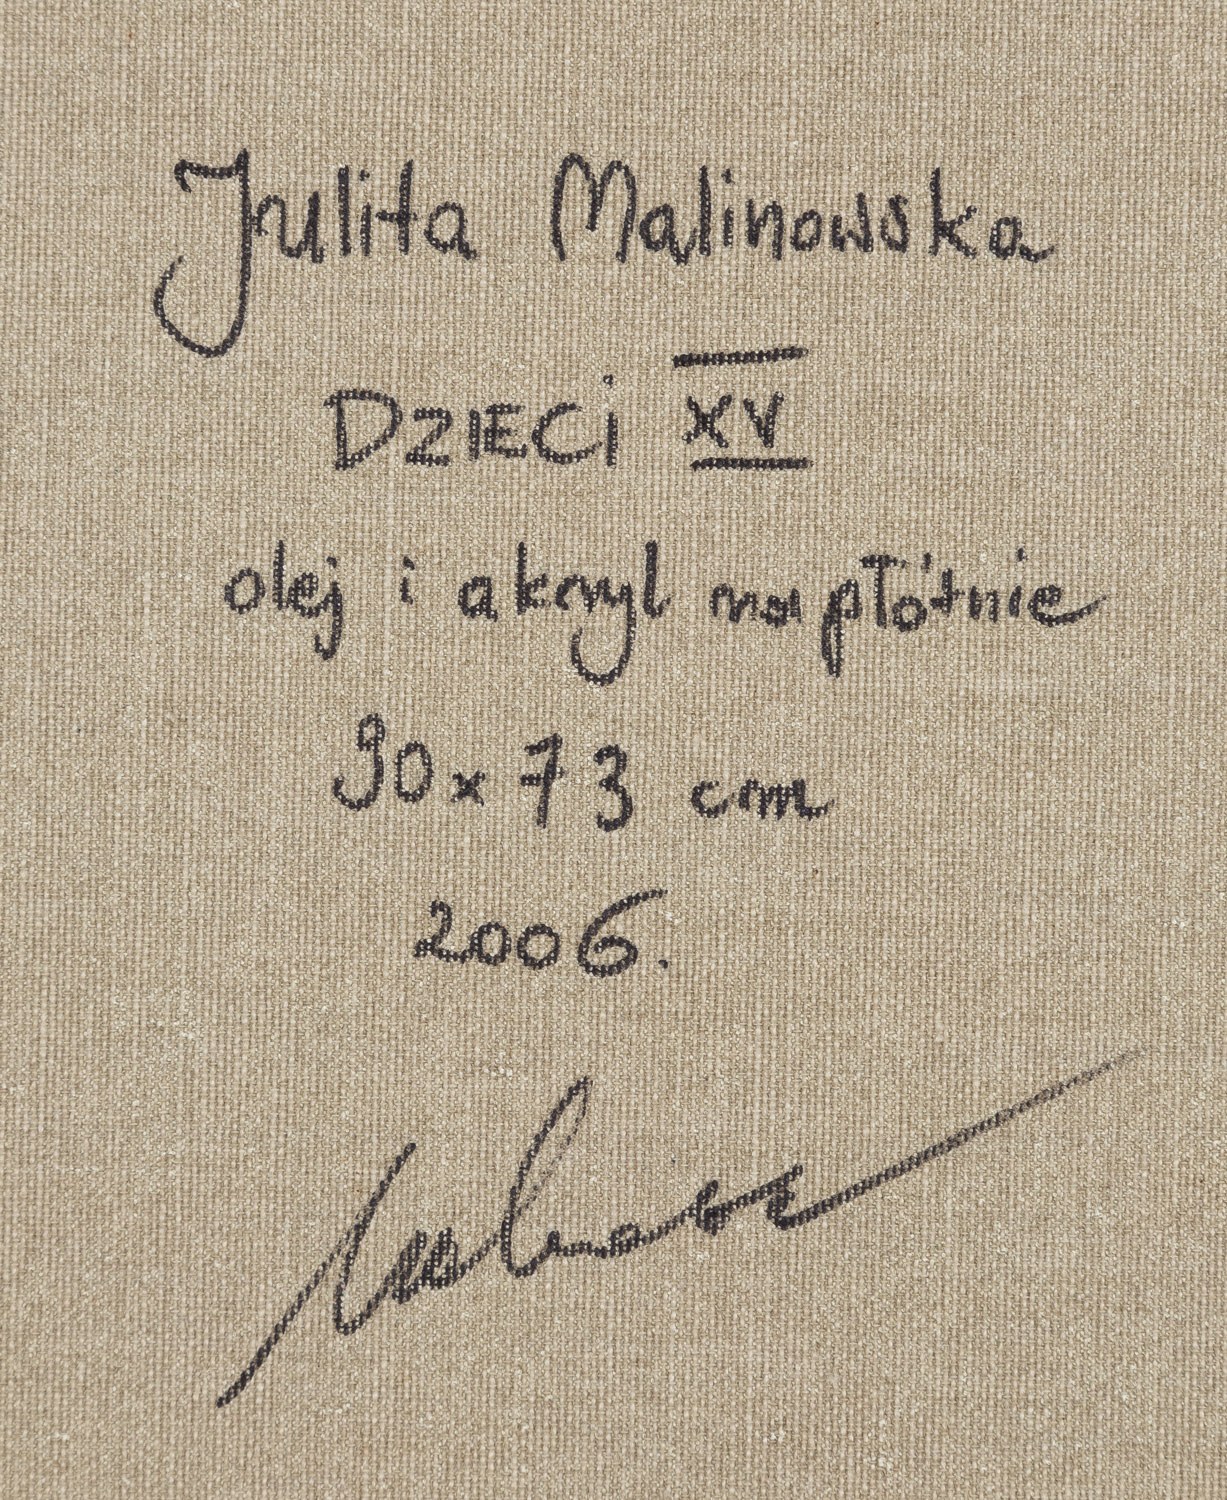 Julita Malinowska
DZIECi XV
olej i akryl na płótnie
90 x 73 cm
2006.